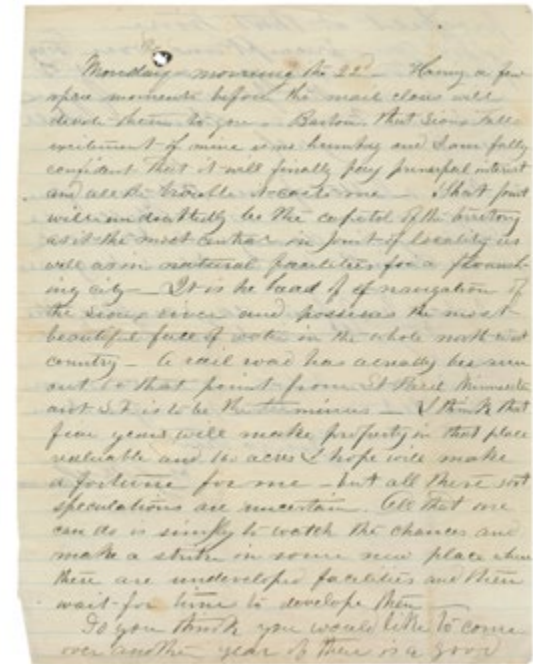 Monday morning the 22d Having a few
spare moments before the mail closes will
devote them to you. Barton, that Sioux Falls
excitement of mine is no humbug and I am fully
confident that it will finally pay principal interest
and all the trouble it costs me — That point
will undoubtedly be the capitol of the territory
as it the most central in point of locality as
well as in natural facilities for a flourish-
ing city — It is the head of navigation of
the Sioux river and possesses the most
beautiful face of water in the whole north west
country — A rail road has already been run
out to that point from St Paul Minnesota
and S.F. is to be the terminus — I think that
few years will make property in that place
valuable and acres I hope will make
a fortune for me — but all these
speculations are uncertain. All that one
can do is simply to watch the chances and
make a strike in some new place where
there are undeveloped facilities and then
wait for time to develope them
Do you think you would like to come
over another year if there is a good